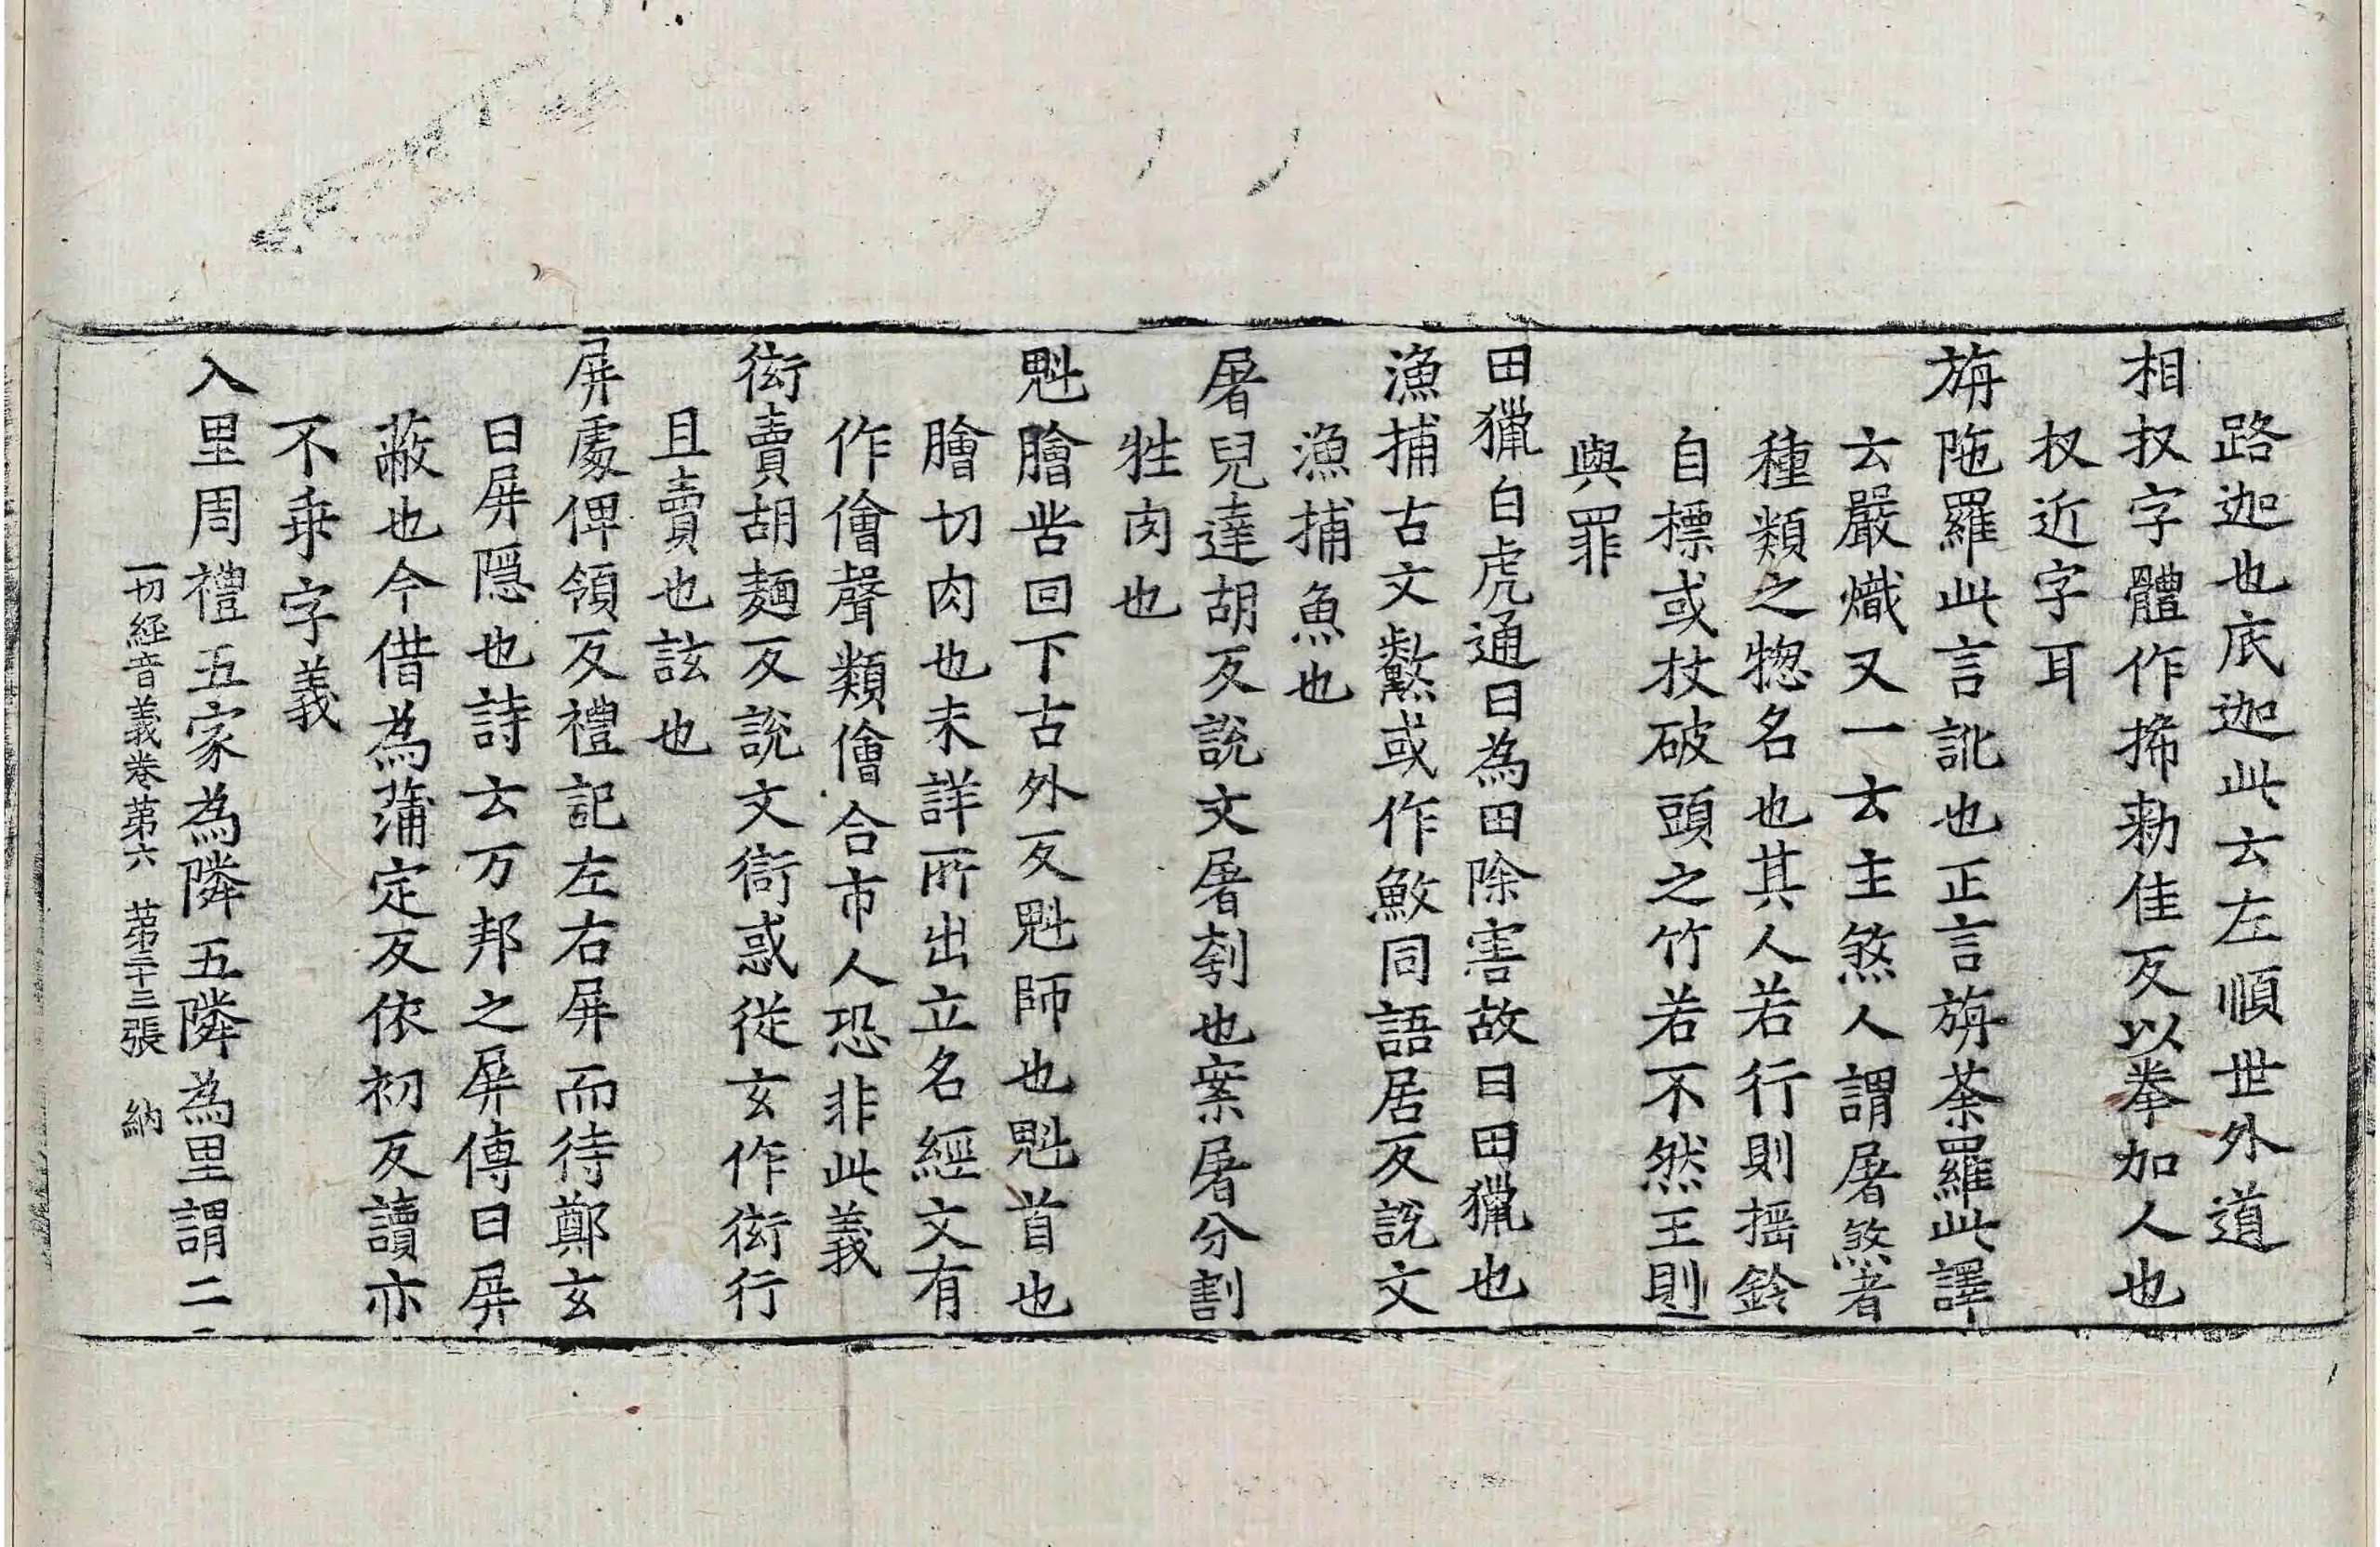 路迦也底迦此云左順世外道
相扠字體作搋勑佳反以拳加人也
扠近字耳
旃陁羅此言訛也正言旃荼羅此譯
云嚴熾又一云主煞人謂屠煞者
種類之惣名也其人若行則搖鈴
自摽或杖破頭之竹若不然王則
與罪
田獵白虎通曰為田除害故曰田獵也
漁捕古文䱷或作䰻同語居反說文
漁捕魚也
屠兒達胡反說文屠刳也案屠分割
牲肉也
魁膾苦回下古外反魁師也魁首也
膾切肉也未詳所出立名經文有
作儈聲類儈合市人恐非此義
衒賣胡麵反說文衒或從玄作衒行
且賣也詃也
屏處俾領反禮記左右屏而待鄭玄
曰屏隱也詩云万邦之屏傳曰屏
蔽也今借為蒲定反依初反讀亦
不乗字義
入里周禮五家為隣五隣為里謂二
一切經音義卷第六 第二十三張 納